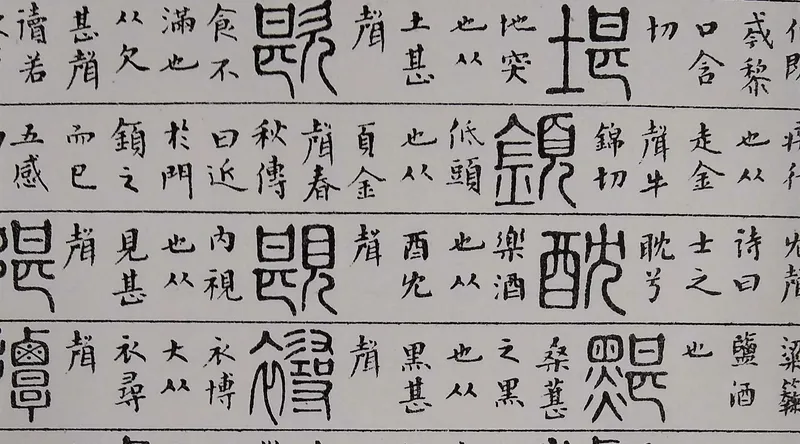 𢦟黎口含切堪地突也从土甚聲歁食不滿也从欠甚聲讀若
也从走金聲牛錦切顉低頭也从頁金聲春秋傳曰近於門顉之而已五感
冘聲詩曰士之耽兮酖樂酒也从酉冘聲內視也从見甚聲
鹽酒也黮桑葚之黑也从黑甚聲襑衣博大从衣尋聲